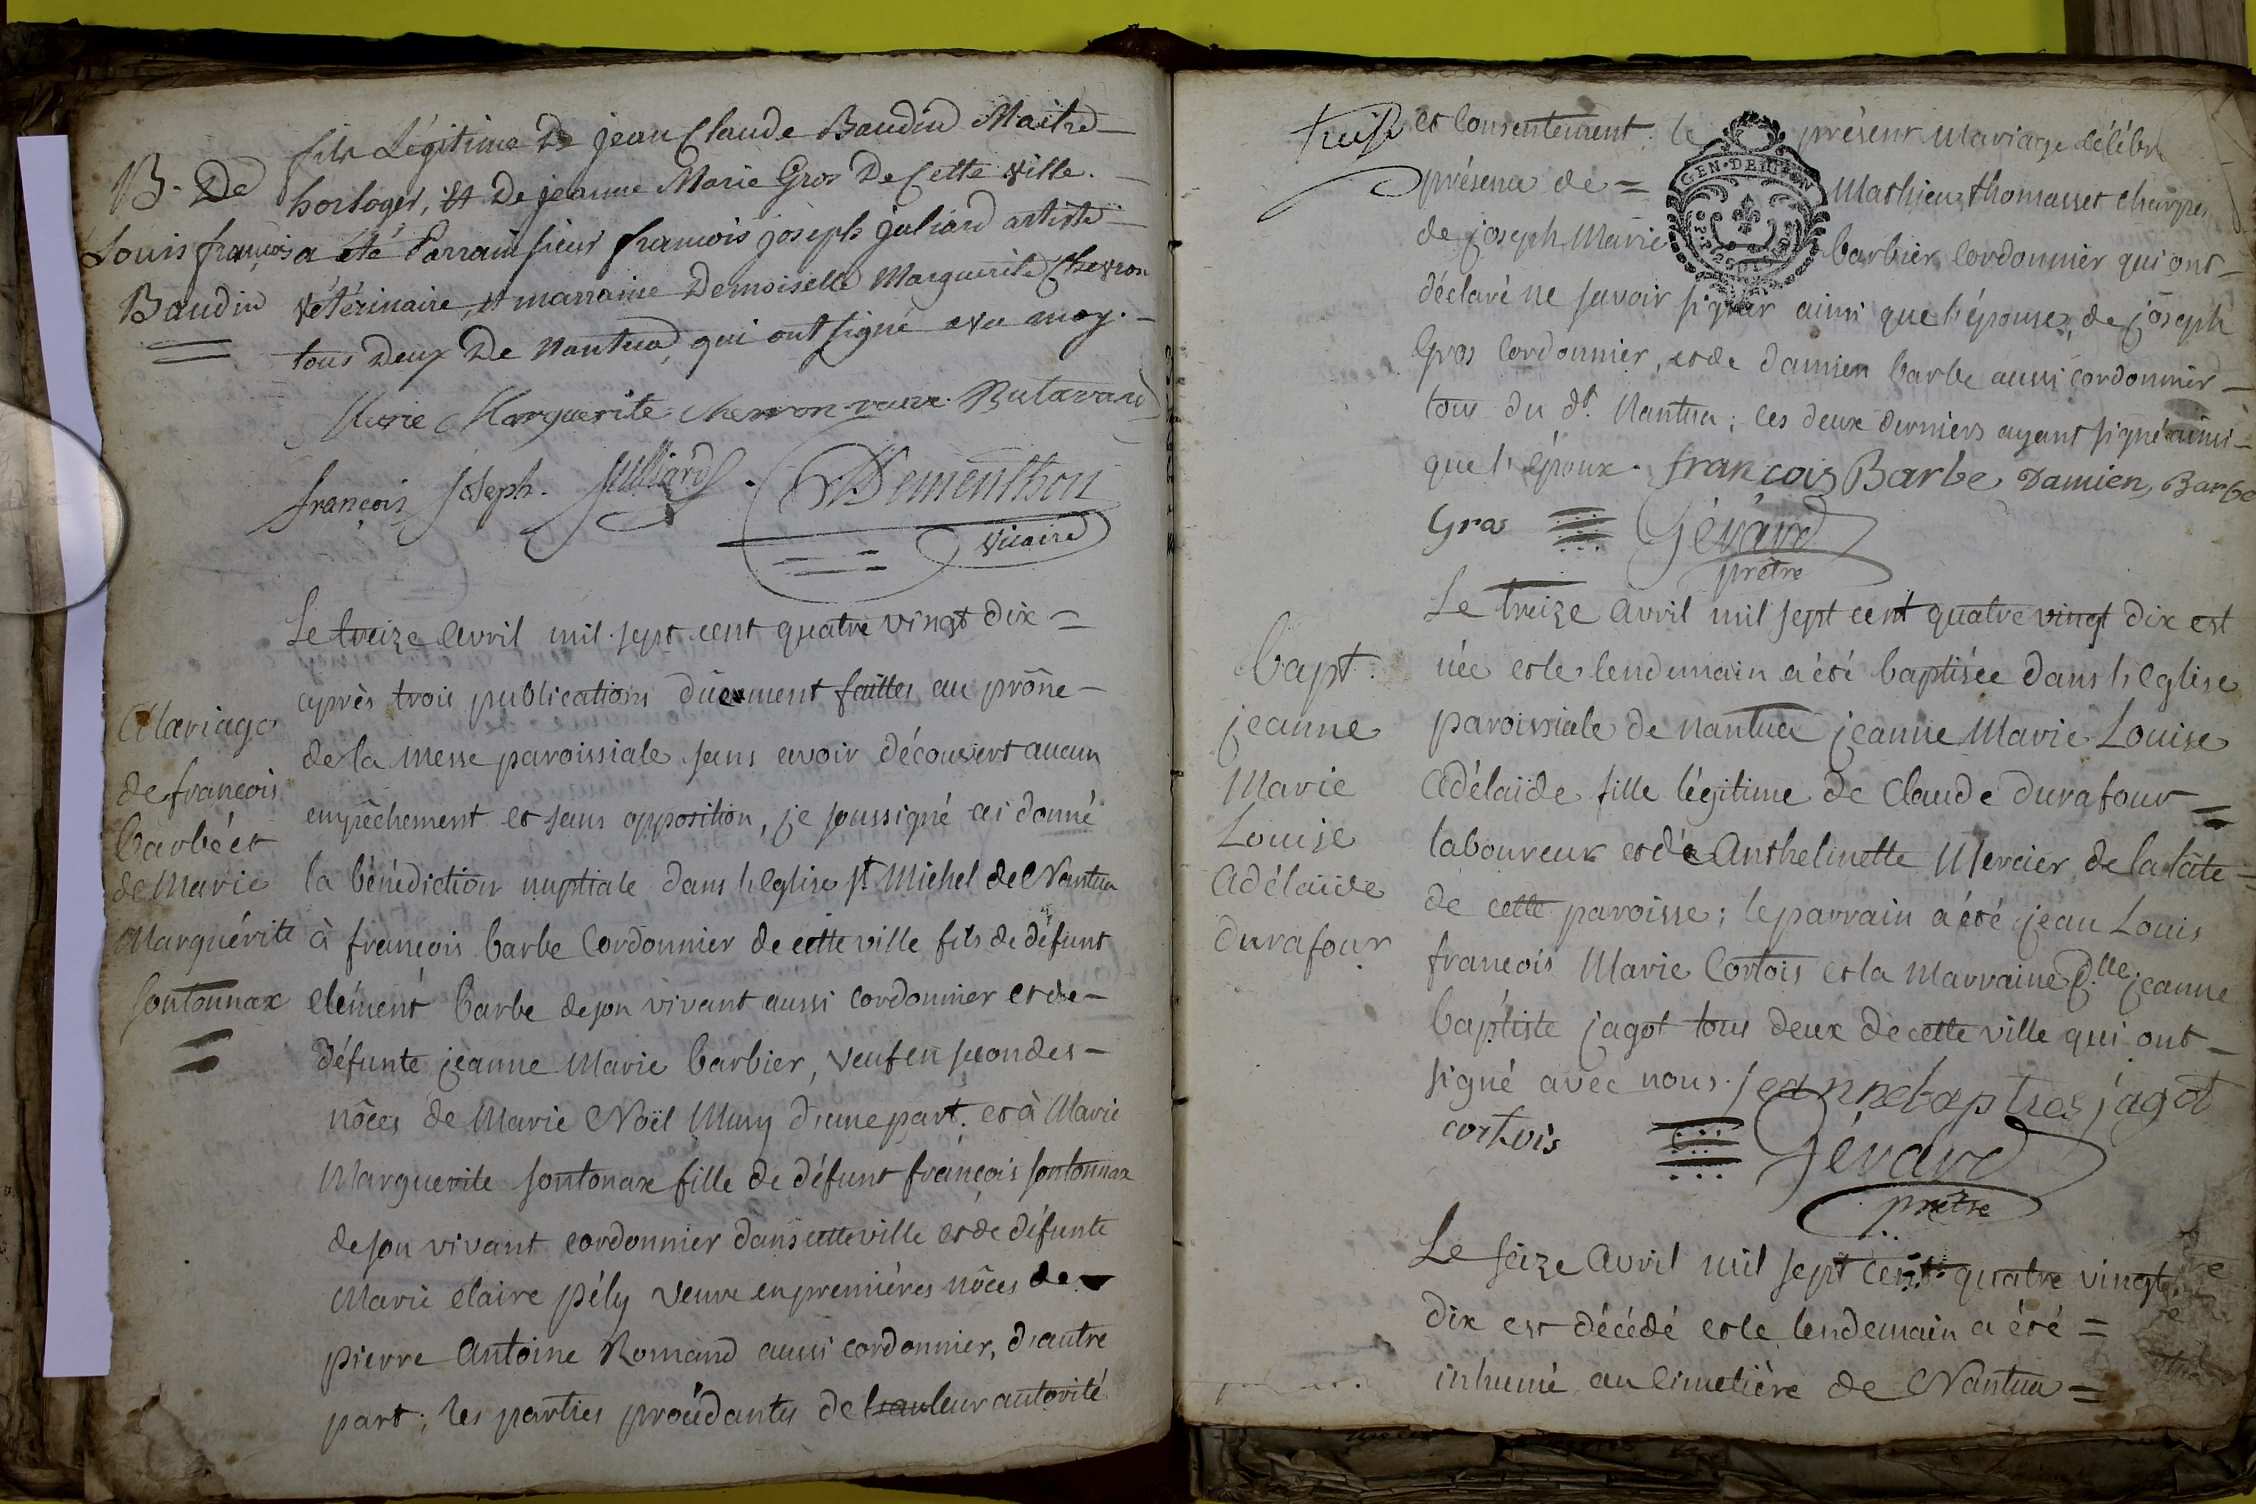 fils Légitime De jean Claude Baudin Maitre
B. De
horloger, Et De jeanne Marie Gros De Cette Ville.
Louis françois
a été Parrain sieur francois joseph juliard artiste
Baudin
Vétérinaire, et marraine Demoiselle Marguerite Chevron
tous Deux De Nantua, qui ont signé avec moy.
Marie Marguerite chevron veuve Butavand
françois Joseph Julliard
Dementhon
Vicaire
Le treize avril mil sept cent quatre vingt dix =
après trois publications düement faittes au prône
de la messe paroissiale sans avoir découvert aucun
empêchement et sans opposition, je soussigné ai donné
la bénédiction nuptiale dans l'Eglise st Michel de Nantua
à francois barbe Cordonnier de cette ville fils de défunt
clément barbe de son vivant aussi cordonnier et de
défunte jeanne Marie barbier, veuf en secondes
nôces de Marie Noël Muny d'une part. et à Marie
Marguerite sontonax fille de défunt françois sontonnax
de son vivant cordonnier dans cette ville et de défunte
Marie claire pély veuve en premières nôces de
pierre antoine Romand aussi cordonnier, d'autre
part; les parties procédantes de leur autorité
Mariage
de francois
barbe et
de Marie
Marguérite
sontonnax
treize
et consentement. le présent Mariage célébré
présence de = Mathieu thomasset
de joseph Marie barbier Cordonnier qui ont
GEN. DE DIJON
déclaré ne savoir signer ainsi que l'épouse, de joseph
Gros Cordonnier, et de damien barbe aussi cordonnier
tous du dt. Nantua; les deux derniers ayant signé ainsi
que l'époux. françois Barbe Damien Barbe
Gros Gérard
prêtre
Le treize avril mil sept cent quatre vingt dix est
née et le lendemain a été baptisée dans l'Eglise
paroissiale de Nantua jeanne Marie Louise
adélaïde fille légitime de Claude durafour =
laboureur et de Anthelmette Mercier de la côte =
de cette paroisse; le parrain a été jean Louis
francois Marie Cortois et la Marraine D.lle jeanne
baptiste jagot tous deux de cette ville qui ont
signé avec nous. jeanne baptiste jagot
cortois Gérard
prêtre
bapt.
jeanne
Marie
Louise
adélaïde
durafour
Le seize avril mil sept cent quatre vingt
dix est décédé et le lendemain a été =
inhumé au cimetière de Nantua =